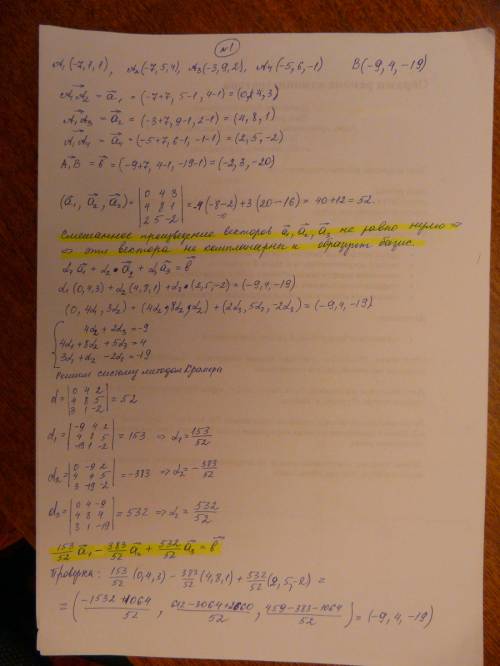 №1
A₁(-7,1,1), A₂(-7,5,4), A₃(-3,9,2), A₄(-5,6,-1) B(-9,4,-19)
A₁A₂ = a₁ = (-7+7, 5-1, 4-1) = (0,4,3)
A₁A₃ = a₂ = (-3+7, 9-1, 2-1) = (4,8,1)
A₁A₄ = a₄ = (-5+7, 6-1, -1-1) = (2,5,-2)
A₁B = b = (-9+7, 4-1, -19-1) = (-2,3,-20)
(a₁, a₂, a₃) = |0 4 3; 4 8 1; 2 5 -2| = -4(-8-2)+3(20-16) = 40+12 = 52.
Смешанное произведение векторов a₁, a₂, a₃ не равно нулю ⇒
⇒ эти вектора не компланарны и образуют базис.
α₁a₁ + α₂·a₂ + α₃a₃ = b
α₁(0,4,3) + α₂(4,8,1) + α₃·(2,5,-2) = (-9,4,-19)
(0, 4α₁, 3α₁) + (4α₂, 8α₂, α₂) + (2α₃, 5α₃, -2α₃) = (-9,4,-19)
4α₂ + 2α₃ = -9
4α₁ + 8α₂ + 5α₃ = 4
3α₁ + α₂ - 2α₃ = -19
Решим систему методом Крамера
d = |0 4 2; 4 8 5; 3 1 -2| = 52
d₁ = |-9 4 2; 4 8 5; -19 1 -2| = 153 ⇒ α₁ = 153/52
d₂ = |0 -9 2; 4 4 5; 3 -19 -2| = -383 ⇒ α₂ = -383/52
d₃ = |0 4 -9; 4 8 4; 3 1 -19| = 532 ⇒ α₂ = 532/52
153/52 a₁ - 383/52 a₂ + 532/52 a₃ = b
Проверка: 153/52 (0,4,3) - 383/52 (4,8,1) + 532/52 (2,5,-2) =
= (-1532+1064/52, 612-3064+2660/52, 459-383-1064/52) = (-9,4,-19)